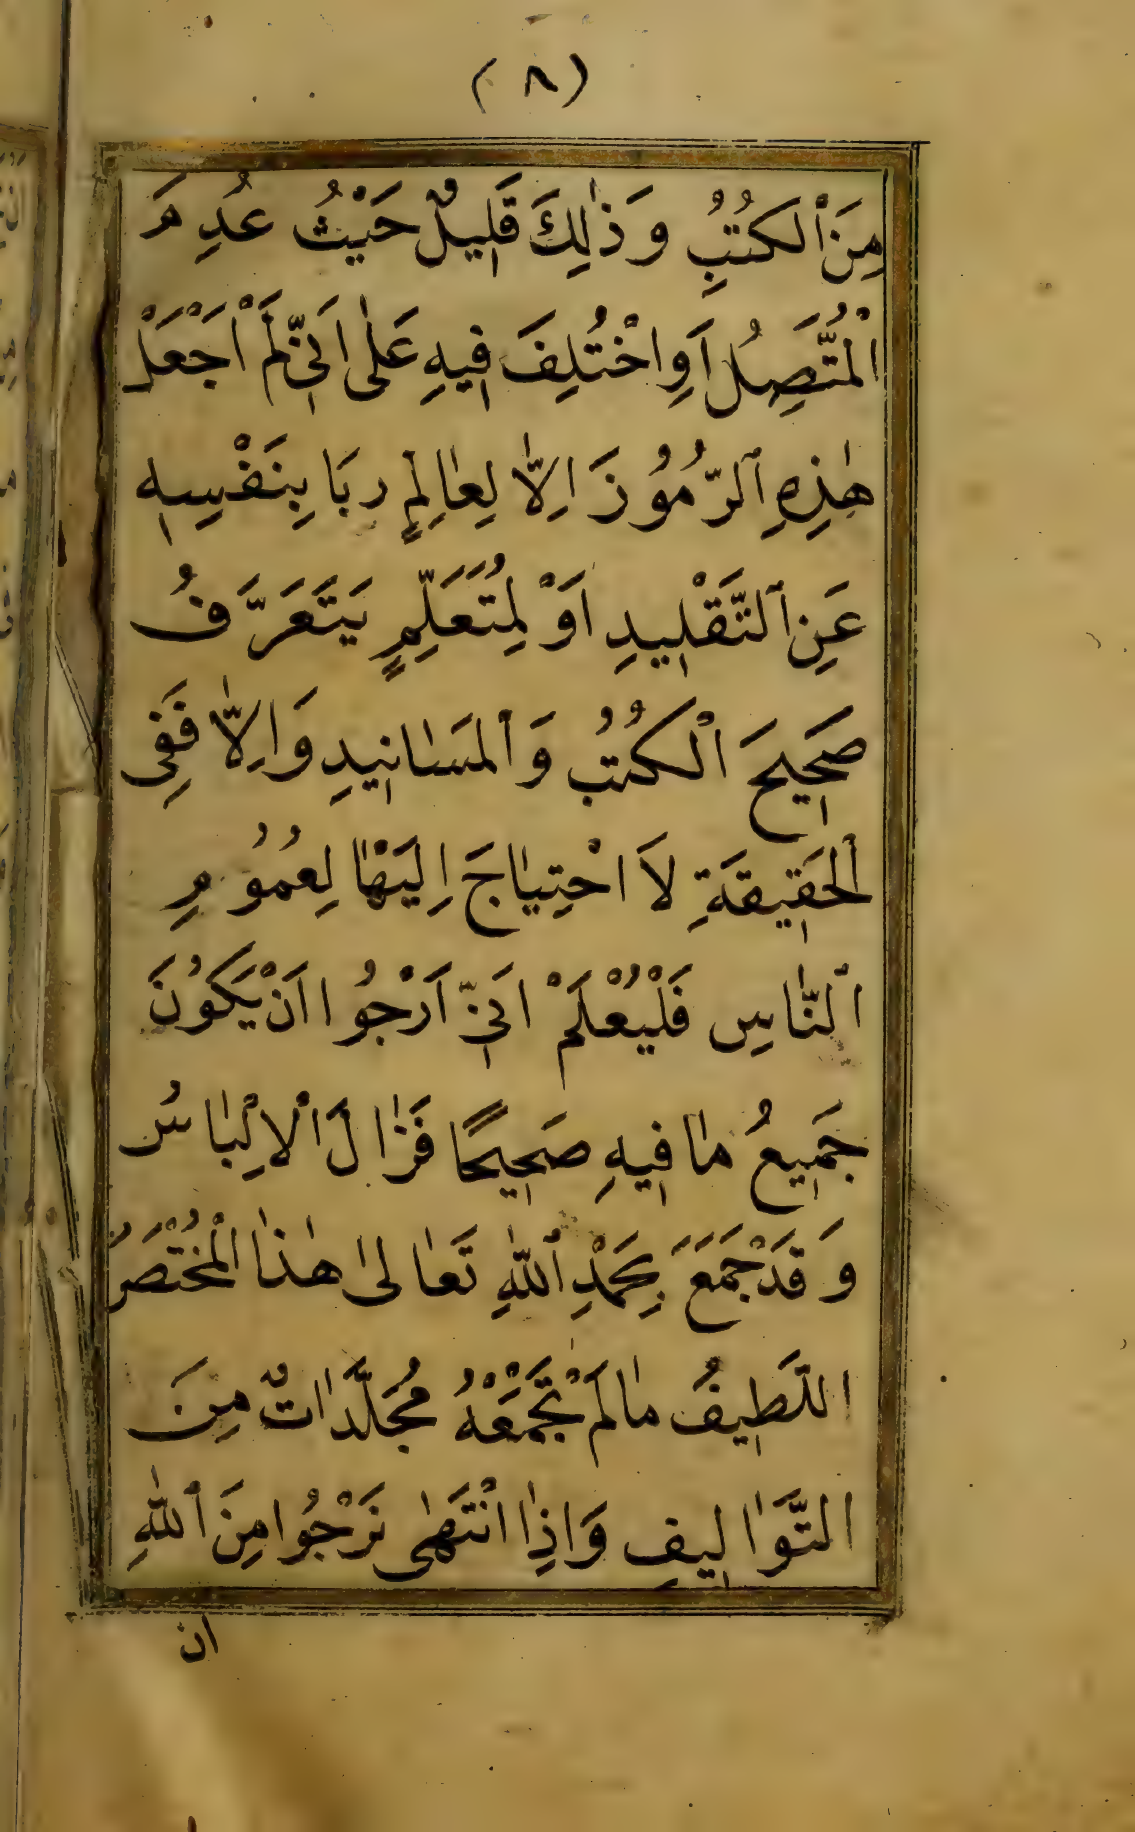 (٨)
مِنَ ٱلكُتُبِ وَذٰلِكَ قَلِيلٌ حَيْثُ عُدِمَ
الْمُتَّصِلُ اَوِ اخْتُلِفَ فِيهِ عَلٰى اَنِّى لَمْ اَجْعَلْ
هٰذِهِ ٱلرُّمُوُزَ اِلاّٰ لِعٰالِمٍ رَبَا بِنَفْسِهِ
عَنِ ٱلتَّقْلِيدِ اَوْ لِمُتَعَلِّمٍ يَتَعَرَّفُ
صَحِيحَ الْكُتُبِ وَٱلمَسٰانِيدِ وَاِلاّٰ فَفِى
ٱلحَقِيقَةِ لاَ احْتِيٰاجَ اِلَيْهٰا لِعُمُوُمِ
ٱلنّٰاسِ فَلْيُعْلَمْ اَنِّىٓ اَرْجُوا اَنْ يَكُوْنَ
جَمِيعُ مٰا فِيهِ صَحِيحًا فَزٰالَ ٱلاِلْبٰاسُ
وَقَدْ جَمَعَ بِحَمْدِ ٱللّٰهِ تَعٰالىٰ هٰذٰا الْمُخْتَصَرُ
اللَّطِيفُ مٰا لَمْ تَجْمَعْهُ مُجَلَّدٰاتٌ مِنَ
التَّوٰالِيفِ وَاِذٰا انْتَهٰى نَرْجُوا مِنَ ٱللّٰهِ
ان